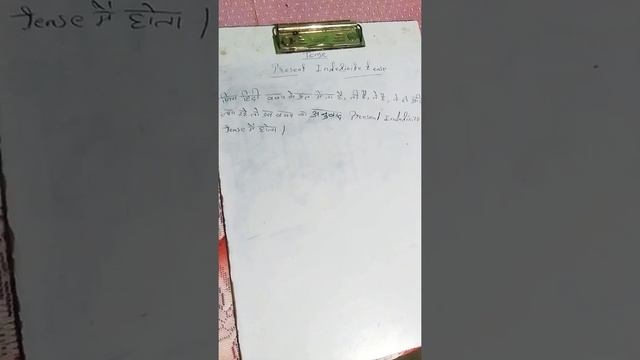 Tense
Present Indefinite tense
जिस हिंदी वाक्य के अंत में ता है, ती है, ते है,
रहे तो उस वाक्य का अनुवाद Present Indefinite
Tense में होता।